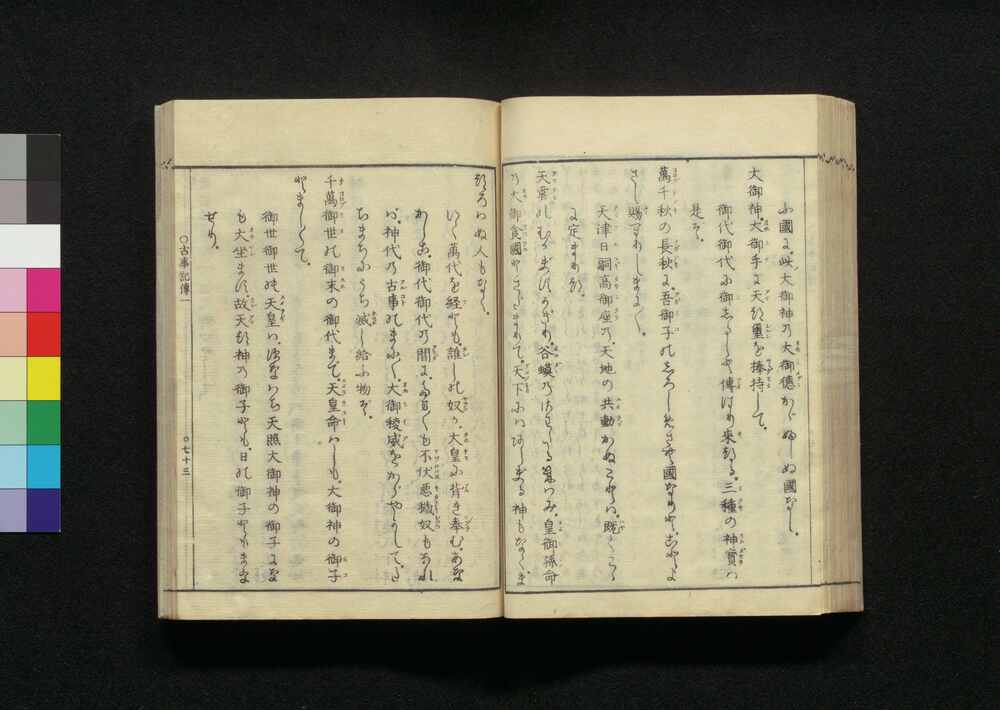 ふ國に此大御神の大御德かゞふらぬ國なし。
大御神、大御手に天つ璽を捧持して、
御代御代に御しるしと傳はり來つる、三種の神寶は
是ぞ。
萬千秋の長秋に、吾御子のしろしめさむ國なりと、ことよ
さし賜へりしまにまに、
天津日嗣高御座の、天地の共動かぬことは、既くこゝ
に定まりつ。
天雲のむかぶすかぎり、谷蟆のさわたるきはみ、皇御孫命
の大御食國とさだまりて、天下にはあらぶる神もなくま
つろはぬ人もなく、
いく萬代を經とも、誰しの奴か、大皇に背き奉む、あな
かしこ、御代御代の間に、たま〳〵も不伏惡穢奴もあれ
ば、神代の古事のまに〳〵、大御稜威をかゞやかして、た
ちまちにうち滅し給ふ物ぞ。
千萬御世の御末の御代まで、天皇命はしも、大御神の御子
とましまして、
御世御世の天皇は、すなはち天照大御神の御子にな
も大坐ます、故天つ神の御子とも、日の御子ともまを
せり。
〇古事記傳一
〇七十三